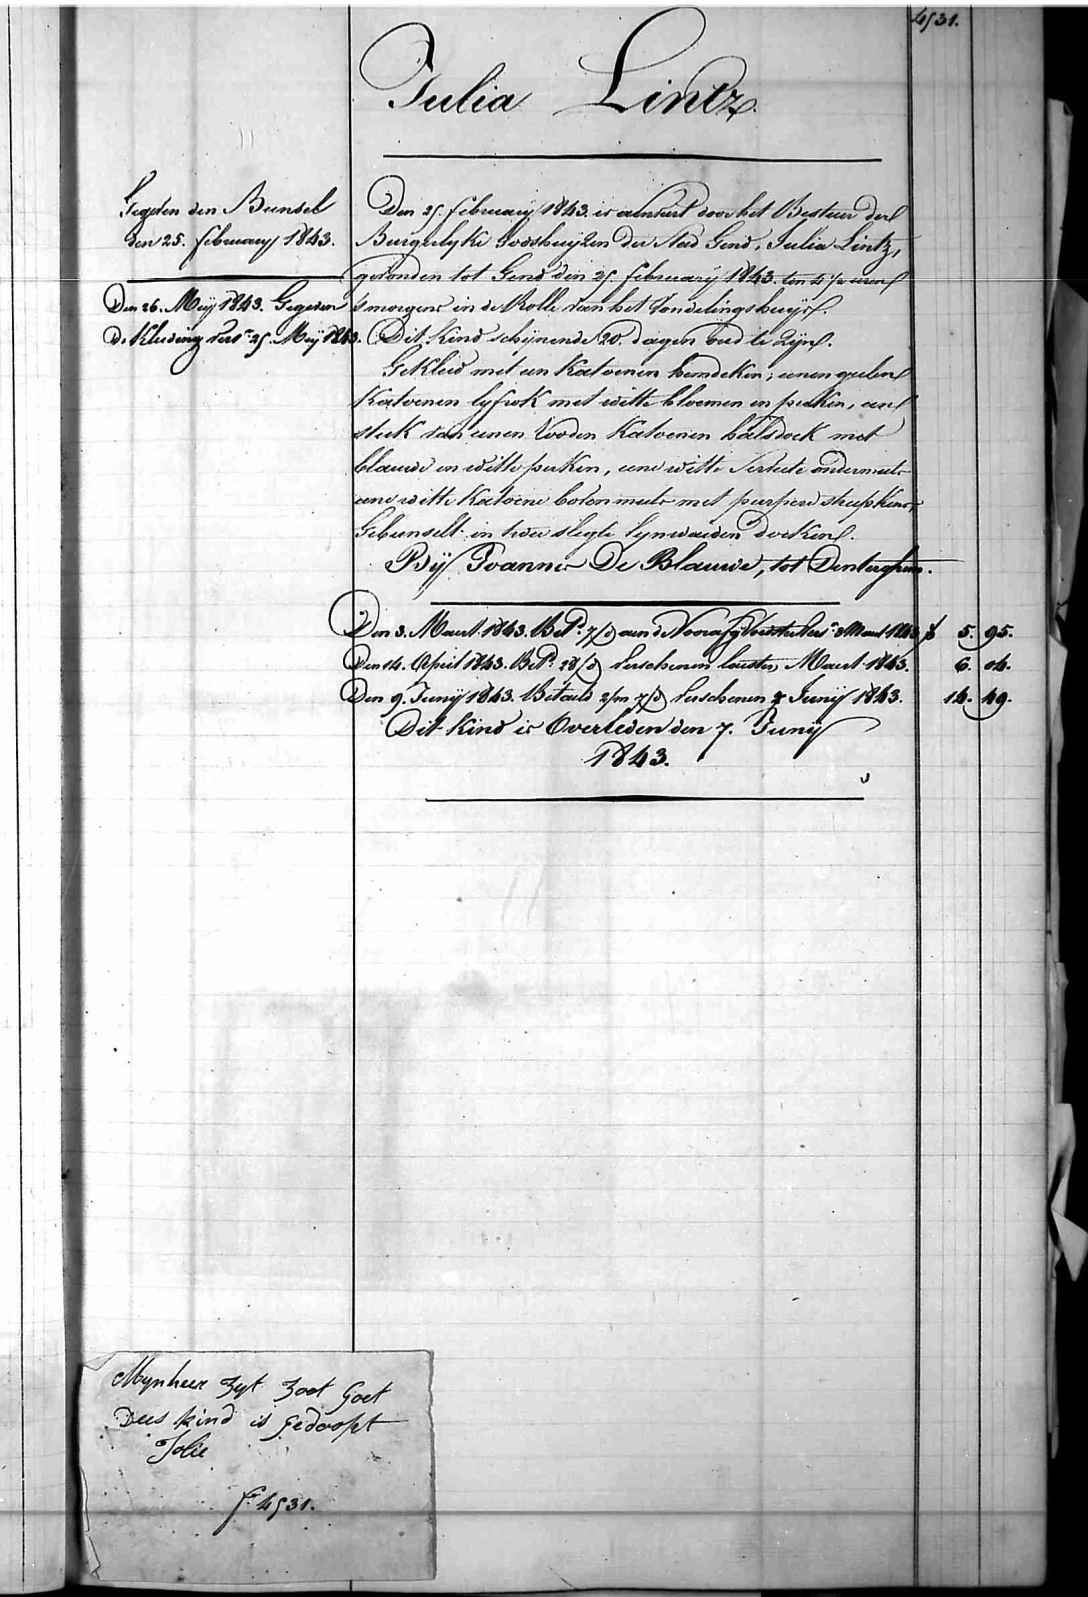 4531.
Julia Lintz.
Gegeven den Bunsel
den 25. february 1843.
Den 26. Meÿ 1843. Gegeven
de Kleeding vers. 25. Meÿ 1843.
Den 25. february 1843. is aenveerd door het Bestuer der
Burgerlyke Godshuijzen der stad Gend, Julia Lintz,
gevonden tot Gend den 25. february 1843. ten 4 ½ uren
smorgens in de Rolle van het Vondelingshuys.
Dit kind schynende 20. dagen oud te zyn.
Gekleed met een Katoenen hemdeken, eenen geelen
Katoenen lyfrok met witte bloemen en perken, een
stuk van eenen Rooden Katoenen halsdoek met
blauwe en witte perken, eene witte ondermuts
eene witte Katoene bovenmuts met purpere streepkens,
Gebunselt in twee slegte lynwaeden doeken.
Bÿ Joannes De Blauwe, tot Denterghem.
Den 3. Maert 1843. Betd. 7/d aen de 3 Maert 1843 f 5. 95.
Den 14. April 1843. Betd. 28/d verschenen lesten Maert 1843. 6. 04.
Den 9. Junÿ 1843. Betaeld 2/m 7/d verschenen 7 Junÿ 1843. 14. 49.
Dit kind is Overleden den 7. Junÿ
1843.
Mynheer zyt zoot goet
Dees kind is gedoopt
Jolie
f° 4531.